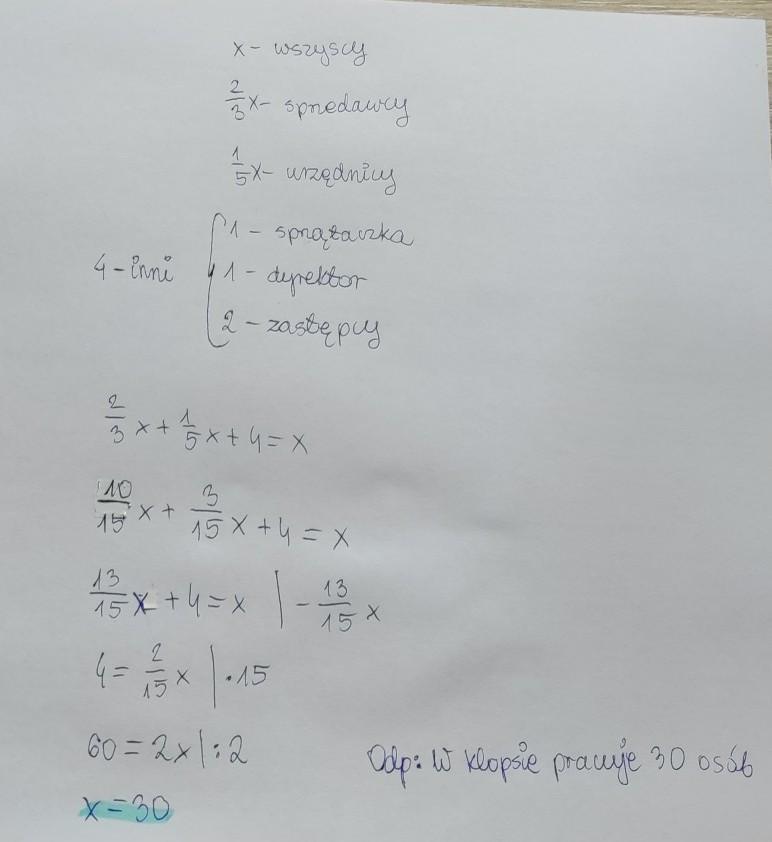 x - wszyscy
2/3 x - sprzedawcy
1/5 x - urzędnicy
4 - inni { 1 - sprzątaczka
1 - dyrektor
2 - zastępcy
2/3 x + 1/5 x + 4 = x
10/15 x + 3/15 x + 4 = x
13/15 x + 4 = x | - 13/15 x
4 = 2/15 x | · 15
60 = 2x | : 2
x = 30
Odp: W klopsie pracuje 30 osób